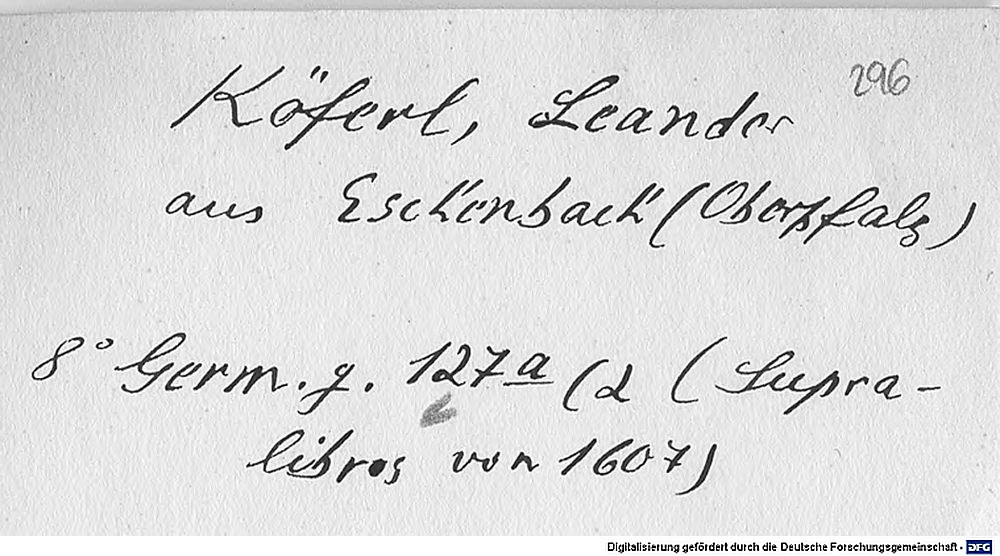 296
Köferl, Leander
aus Eschenbach (Oberpfalz)
8° Germ. g. 127 a (2 (Supra-
libros von 1607)
Digitalisierung gefördert durch die Deutsche Forschungsgemeinschaft - DFG